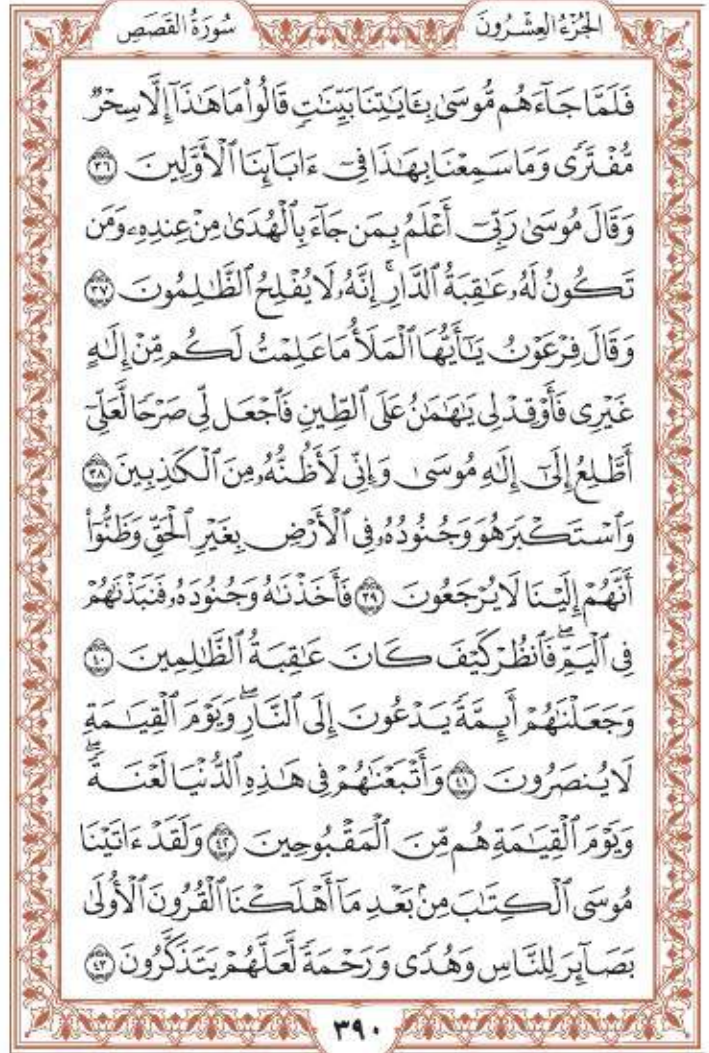 الجُزْءُ العِشْرُونَ
سُورَةُ القَصَصِ
فَلَمَّا جَآءَهُم مُّوسَىٰ بِـَٔايَٰتِنَا بَيِّنَٰتٍ قَالُوا۟ مَا هَٰذَآ إِلَّا سِحْرٌ
مُّفْتَرًى وَمَا سَمِعْنَا بِهَٰذَا فِىٓ ءَابَآئِنَا ٱلْأَوَّلِينَ ٣٦
وَقَالَ مُوسَىٰ رَبِّىٓ أَعْلَمُ بِمَن جَآءَ بِٱلْهُدَىٰ مِنْ عِندِهِۦ وَمَن
تَكُونُ لَهُۥ عَٰقِبَةُ ٱلدَّارِ ۚ إِنَّهُۥ لَا يُفْلِحُ ٱلظَّٰلِمُونَ ٣٧
وَقَالَ فِرْعَوْنُ يَٰٓأَيُّهَا ٱلْمَلَأُ مَا عَلِمْتُ لَكُم مِّنْ إِلَٰهٍ
غَيْرِى فَأَوْقِدْ لِى يَٰهَٰمَٰنُ عَلَى ٱلطِّينِ فَٱجْعَل لِّى صَرْحًا لَّعَلِّىٓ
أَطَّلِعُ إِلَىٰٓ إِلَٰهِ مُوسَىٰ وَإِنِّى لَأَظُنُّهُۥ مِنَ ٱلْكَٰذِبِينَ ٣٨
وَٱسْتَكْبَرَ هُوَ وَجُنُودُهُۥ فِى ٱلْأَرْضِ بِغَيْرِ ٱلْحَقِّ وَظَنُّوٓا۟
أَنَّهُمْ إِلَيْنَا لَا يُرْجَعُونَ ٣٩ فَأَخَذْنَٰهُ وَجُنُودَهُۥ فَنَبَذْنَٰهُمْ
فِى ٱلْيَمِّ ۖ فَٱنظُرْ كَيْفَ كَانَ عَٰقِبَةُ ٱلظَّٰلِمِينَ ٤٠
وَجَعَلْنَٰهُمْ أَئِمَّةً يَدْعُونَ إِلَى ٱلنَّارِ ۖ وَيَوْمَ ٱلْقِيَٰمَةِ
لَا يُنصَرُونَ ٤١ وَأَتْبَعْنَٰهُمْ فِى هَٰذِهِ ٱلدُّنْيَا لَعْنَةً ۖ
وَيَوْمَ ٱلْقِيَٰمَةِ هُم مِّنَ ٱلْمَقْبُوحِينَ ٤٢ وَلَقَدْ ءَاتَيْنَا
مُوسَى ٱلْكِتَٰبَ مِنۢ بَعْدِ مَآ أَهْلَكْنَا ٱلْقُرُونَ ٱلْأُولَىٰ
بَصَآئِرَ لِلنَّاسِ وَهُدًى وَرَحْمَةً لَّعَلَّهُمْ يَتَذَكَّرُونَ ٤٣
٣٩٠